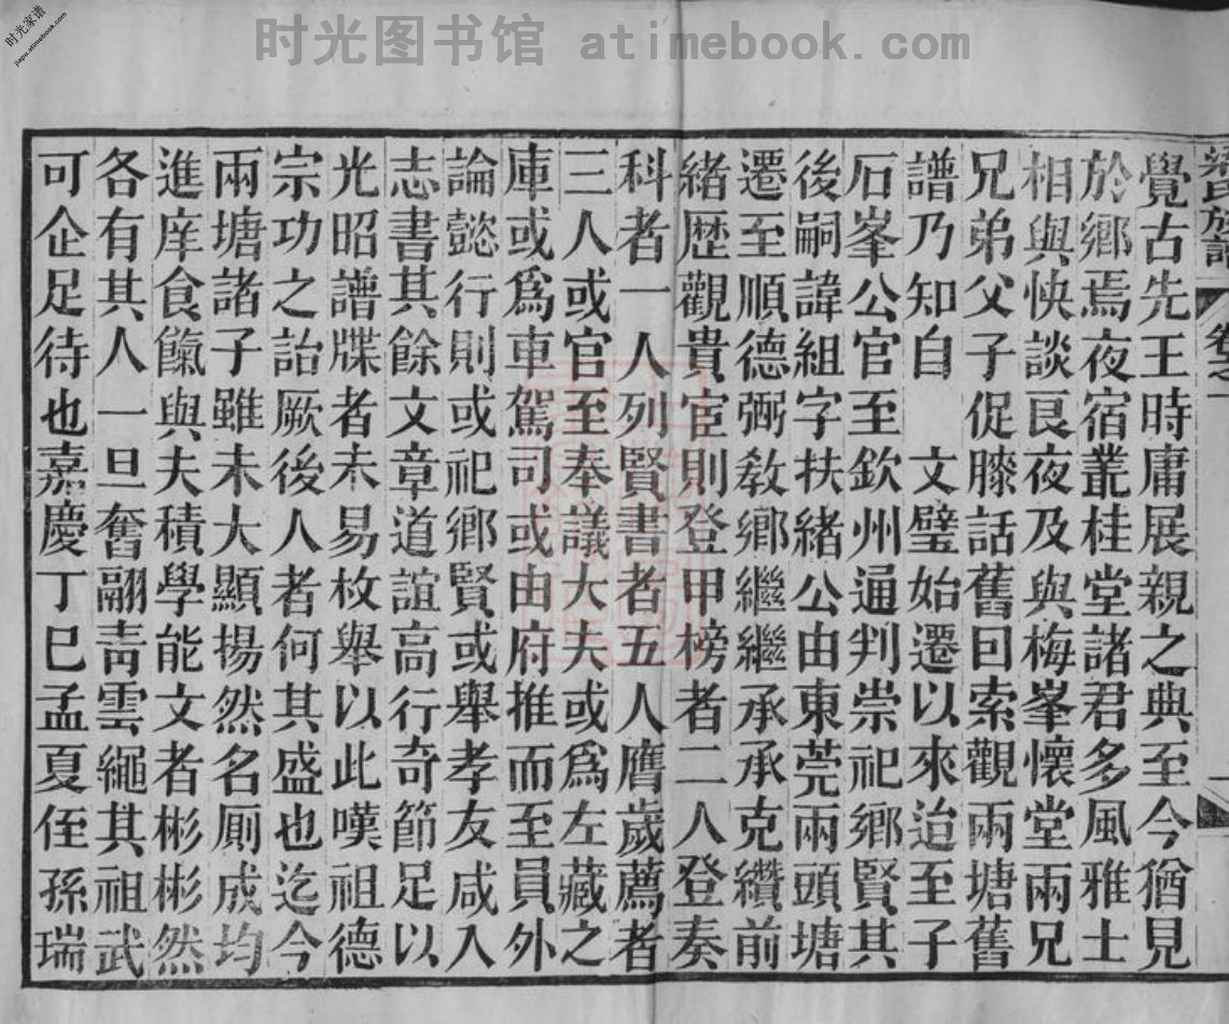 时光家谱
jiapu.atimebook.com
时光图书馆 atimebook.com
梁氏族譜
卷之一
覺古先王時庸展親之典至今猶見
於鄉焉夜宿叢桂堂諸君多風雅士
相與快談艮夜及與梅峯懷堂兩兄
兄弟父子促膝話舊回索觀兩塘舊
譜乃知自 文璧始遷以來迨至子
石峯公官至欽州通判崇祀鄉賢其
後嗣諱組字扶緒公由東莞兩頭塘
遷至順德弼敎鄉繼繼承承克纘前
緒歷觀貴宦則登甲榜者二人登奏
科者一人列賢書者五人膺歲薦者
三人或官至奉議大夫或爲左藏之
庫或爲車駕司或由府推而至員外
論懿行則或祀鄉賢或舉孝友咸入
志書其餘文章道誼高行奇節足以
光昭譜牒者未易枚舉以此嘆祖德
宗功之詒厥後人者何其盛也迄今
兩塘諸子雖未大顯揚然名厠成均
進庠食餼與夫積學能文者彬彬然
各有其人一旦奮翮靑雲繩其祖武
可企足待也嘉慶丁巳孟夏侄孫瑞